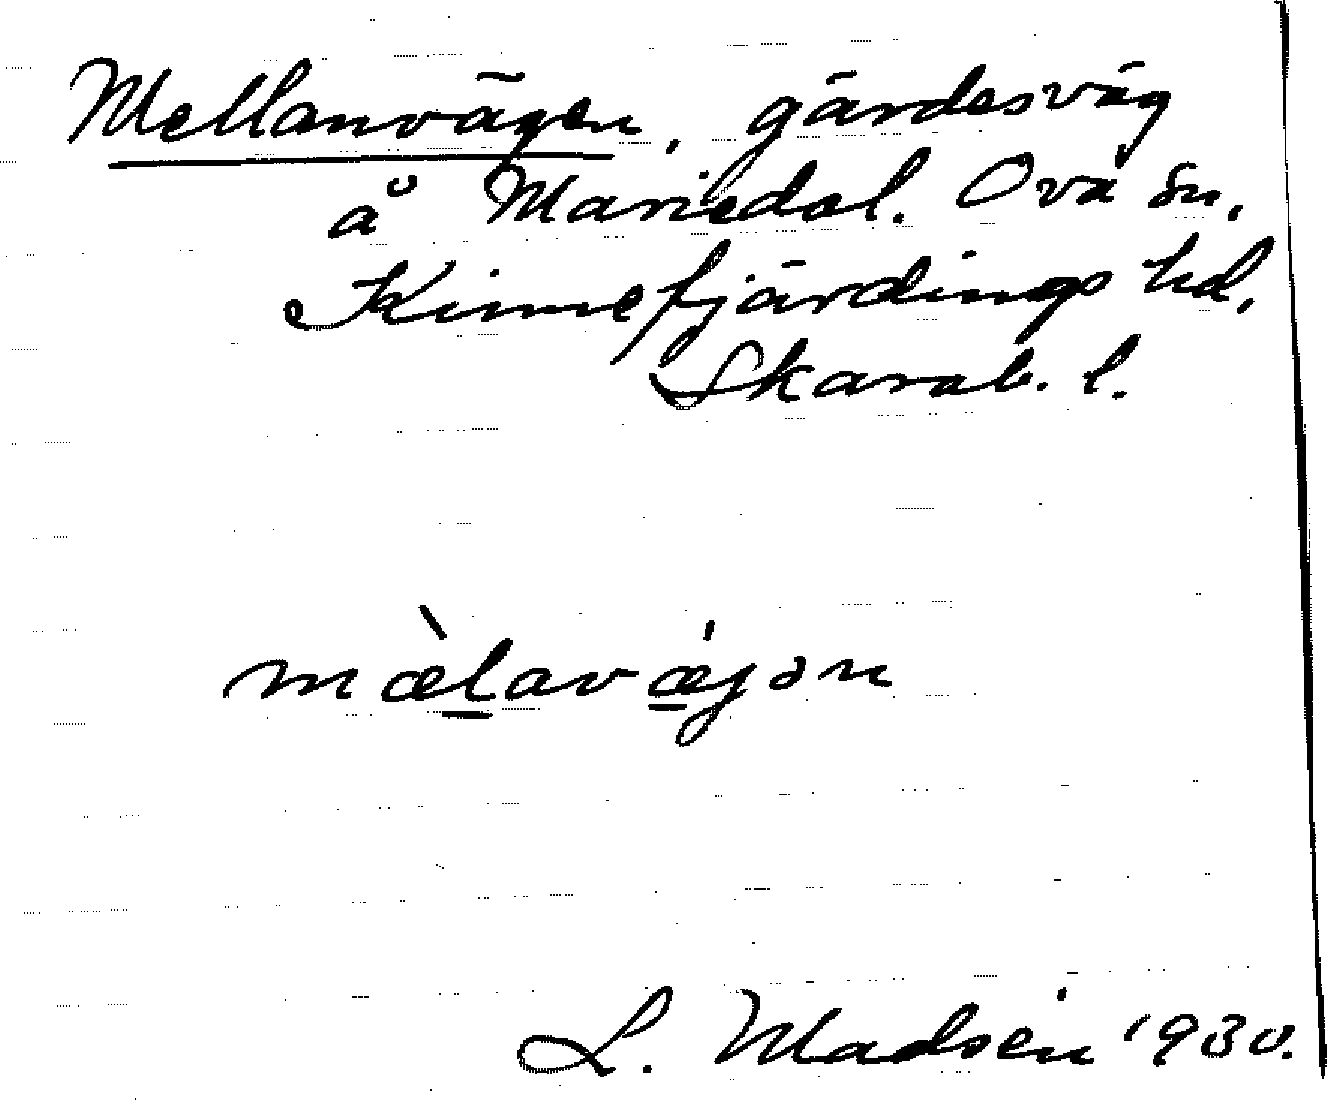 Mellanvägen, gärdesväg
å Mariedal. Ova sn,
Kinnefjärdings hd,
Skarab. l.
mæ̀lavǽjən
L. Madsén 1930.